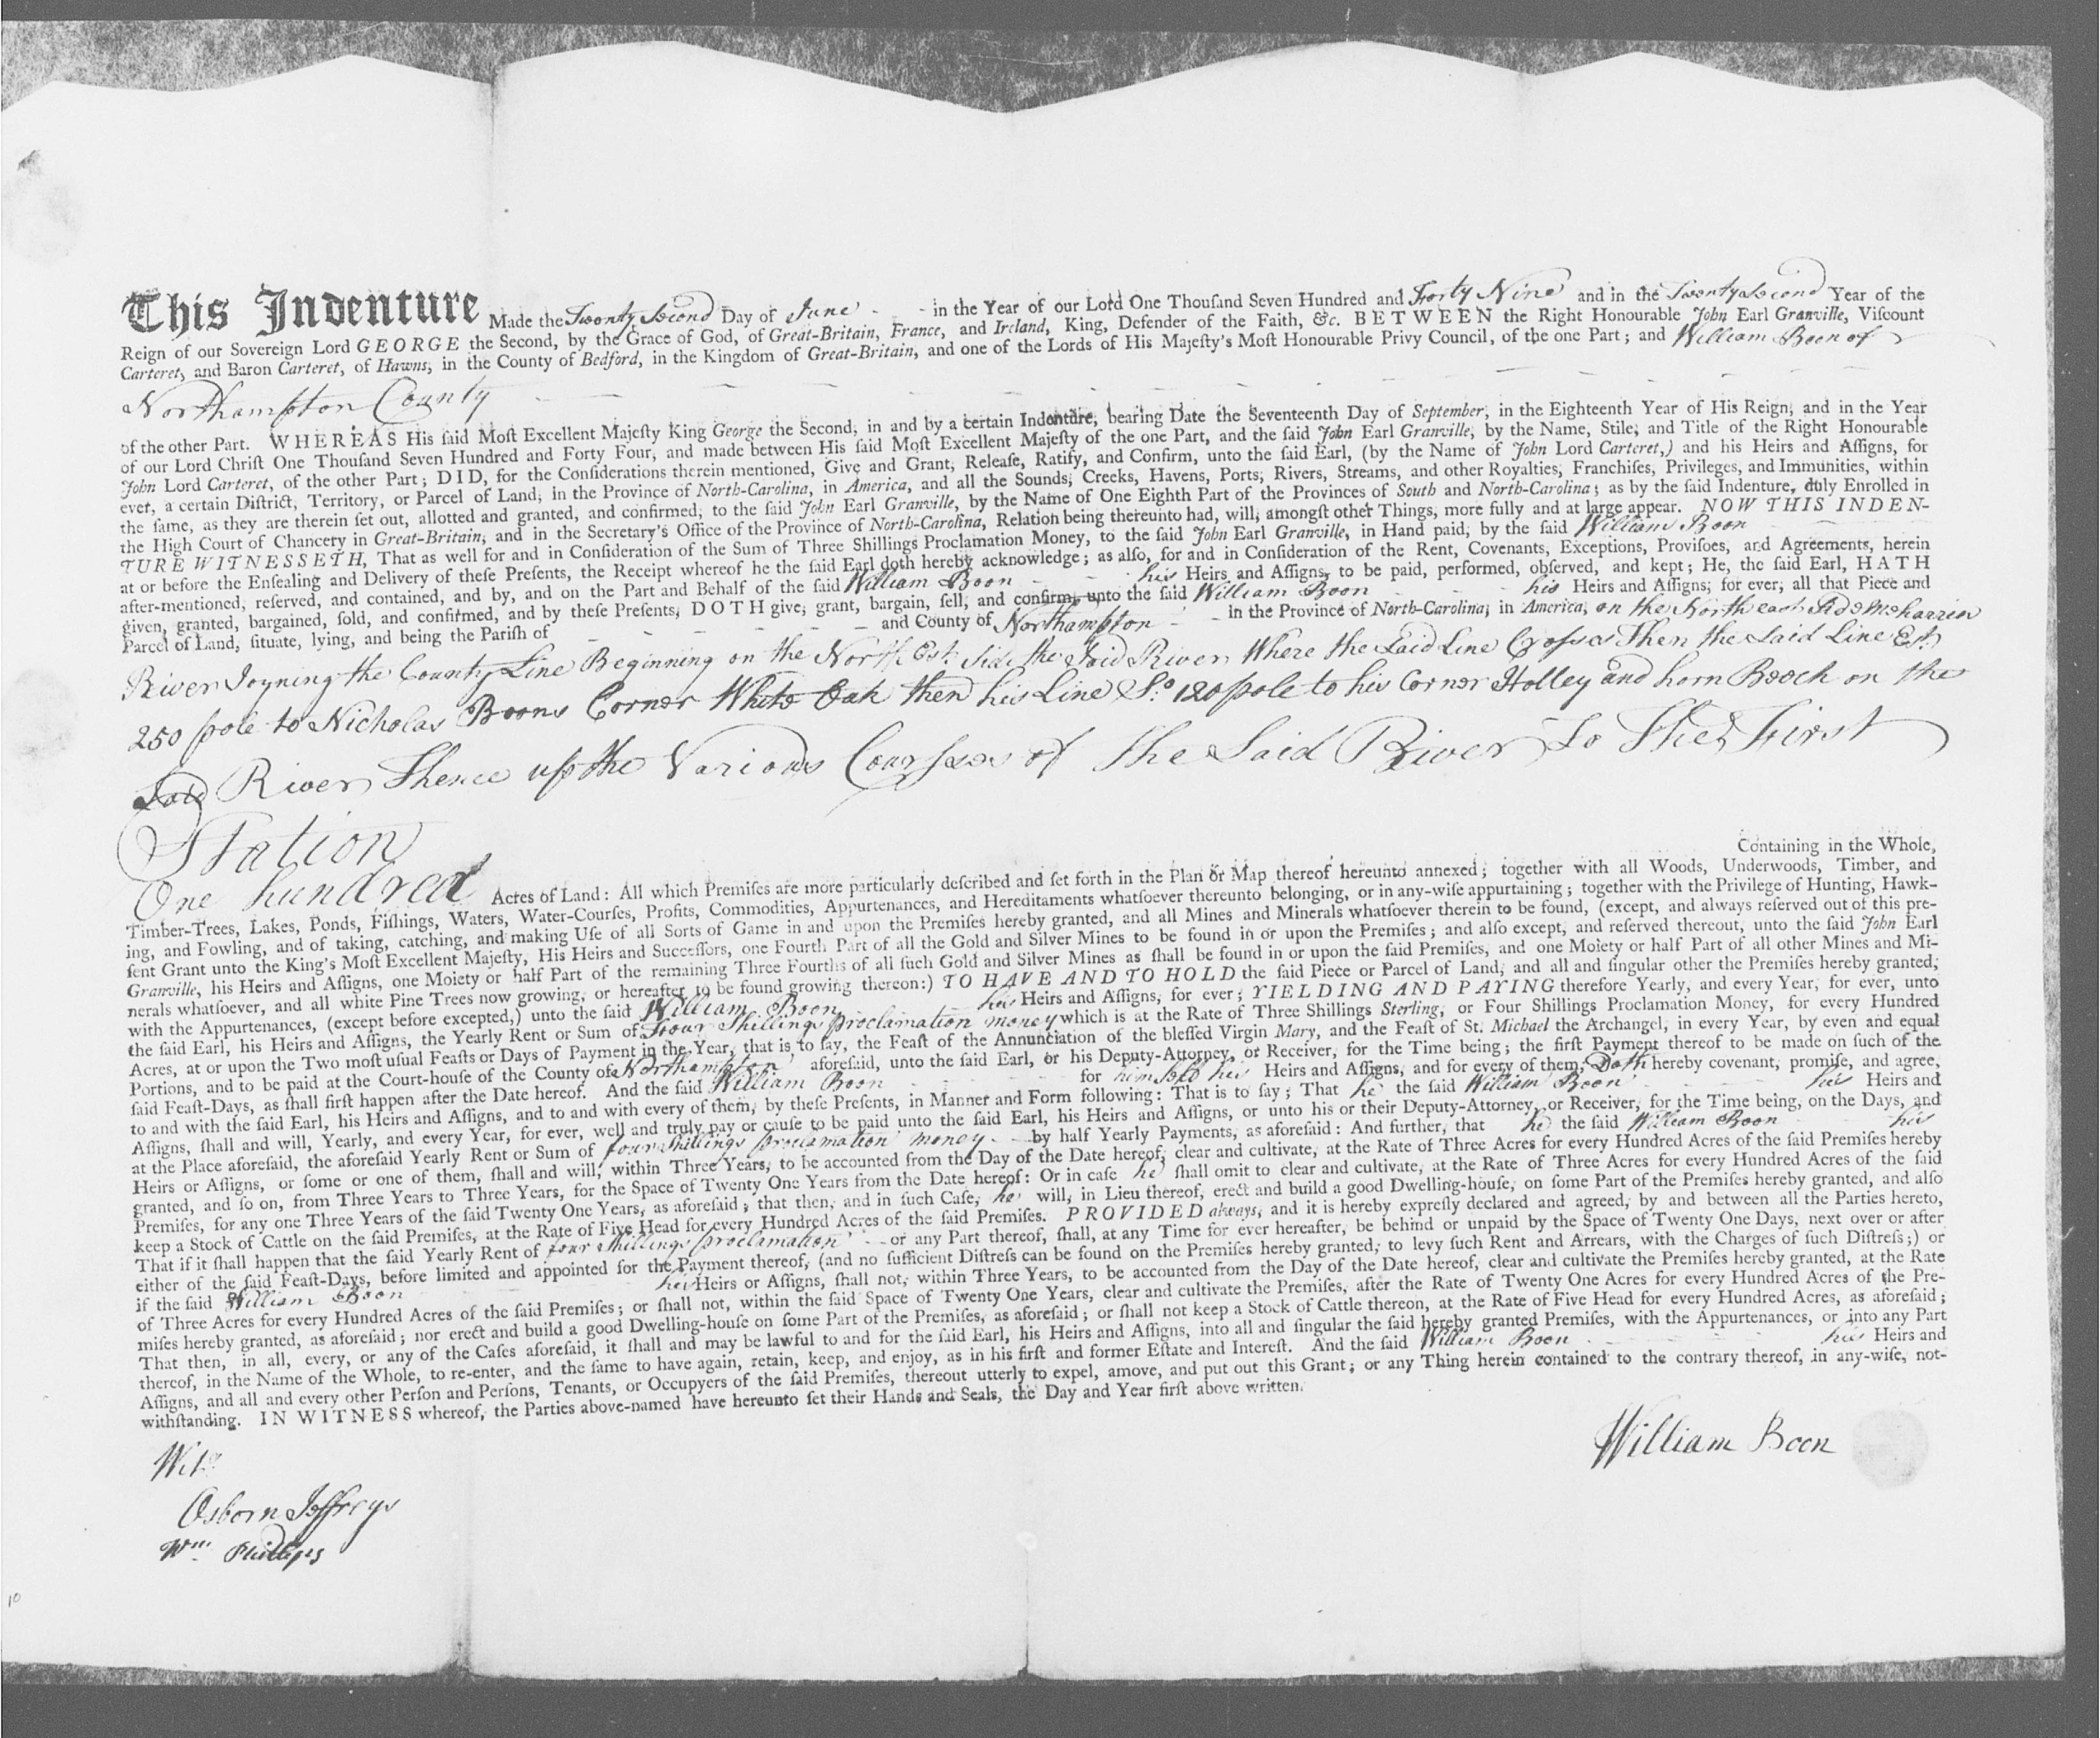 This Indenture Made the Twenty Second Day of June - - in the Year of our Lord One Thouſand Seven Hundred and Forty Nine and in the Twenty Second Year of the
Reign of our Sovereign Lord GEORGE the Second, by the Grace of God, of Great-Britain, France, and Ireland, King, Defender of the Faith, &c. BETWEEN the Right Honourable John Earl Granville, Viſcount
Carteret, and Baron Carteret, of Hawns, in the County of Bedford, in the Kingdom of Great-Britain, and one of the Lords of His Majeſty's Moſt Honourable Privy Council, of the one Part; and William Boon of
Northampton County
of the other Part. WHEREAS His ſaid Moſt Excellent Majeſty King George the Second, in and by a certain Indenture, bearing Date the Seventeenth Day of September, in the Eighteenth Year of His Reign, and in the Year
of our Lord Chriſt One Thouſand Seven Hundred and Forty Four, and made between His ſaid Moſt Excellent Majeſty of the one Part, and the ſaid John Earl Granville, by the Name, Stile, and Title of the Right Honourable
John Lord Carteret, of the other Part; DID, for the Conſiderations therein mentioned, Give and Grant, Releaſe, Ratify, and Confirm, unto the ſaid Earl, (by the Name of John Lord Carteret,) and his Heirs and Aſſigns, for
ever, a certain Diſtrict, Territory, or Parcel of Land, in the Province of North-Carolina, in America, and all the Sounds, Creeks, Havens, Ports, Rivers, Streams, and other Royalties, Franchiſes, Privileges, and Immunities, within
the ſame, as they are therein ſet out, allotted and granted, and confirmed, to the ſaid John Earl Granville, by the Name of One Eighth Part of the Provinces of South and North-Carolina; as by the ſaid Indenture, duly Enrolled in
the High Court of Chancery in Great-Britain, and in the Secretary's Office of the Province of North-Carolina, Relation being thereunto had, will, amongſt other Things, more fully and at large appear. NOW THIS INDEN-
TURE WITNESSETH, That as well for and in Conſideration of the Sum of Three Shillings Proclamation Money, to the ſaid John Earl Granville, in Hand paid, by the ſaid William Boon
at or before the Enſealing and Delivery of theſe Preſents, the Receipt whereof he the ſaid Earl doth hereby acknowledge; as alſo, for and in Conſideration of the Rent, Covenants, Exceptions, Proviſoes, and Agreements, herein
after-mentioned, reſerved, and contained, and by, and on the Part and Behalf of the ſaid William Boon his Heirs and Aſſigns, to be paid, performed, obſerved, and kept; He, the ſaid Earl, HATH
given, granted, bargained, ſold, and confirmed, and by theſe Preſents, DOTH give, grant, bargain, ſell, and confirm, unto the ſaid William Boon his Heirs and Aſſigns, for ever, all that Piece and
Parcel of Land, ſituate, lying, and being the Pariſh of and County of Northampton in the Province of North-Carolina, in America, on the North east Side Meharrin
River Joyning the County Line Beginning on the North Est. Side the Said River Where the Said Line Crosses Then the Said Line Est.
250 pole to Nicholas Boons Corner White Oak then his Line So. 120 pole to his Corner Holley and horn Beech on the
Said River Thence up the Various Courses of the Said River To The First
Station
Containing in the Whole,
One hundred Acres of Land: All which Premiſes are more particularly deſcribed and ſet forth in the Plan or Map thereof hereunto annexed; together with all Woods, Underwoods, Timber, and
Timber-Trees, Lakes, Ponds, Fiſhings, Waters, Water-Courſes, Profits, Commodities, Appurtenances, and Hereditaments whatſoever thereunto belonging, or in any-wiſe appurtaining; together with the Privilege of Hunting, Hawk-
ing, and Fowling, and of taking, catching, and making Uſe of all Sorts of Game in and upon the Premiſes hereby granted, and all Mines and Minerals whatſoever therein to be found, (except, and always reſerved out of this pre-
ſent Grant unto the King's Moſt Excellent Majeſty, His Heirs and Succeſſors, one Fourth Part of all the Gold and Silver Mines to be found in or upon the Premiſes; and alſo except, and reſerved thereout, unto the ſaid John Earl
Granville, his Heirs and Aſſigns, one Moiety or half Part of the remaining Three Fourths of all ſuch Gold and Silver Mines as ſhall be found in or upon the ſaid Premiſes, and one Moiety or half Part of all other Mines and Mi-
nerals whatſoever, and all white Pine Trees now growing, or hereafter to be found growing thereon:) TO HAVE AND TO HOLD the ſaid Piece or Parcel of Land, and all and ſingular other the Premiſes hereby granted,
with the Appurtenances, (except before excepted,) unto the ſaid William Boon his Heirs and Aſſigns, for ever; YIELDING AND PAYING therefore Yearly, and every Year, for ever, unto
the ſaid Earl, his Heirs and Aſſigns, the Yearly Rent or Sum of Four Shillings proclamation money which is at the Rate of Three Shillings Sterling, or Four Shillings Proclamation Money, for every Hundred
Acres, at or upon the Two moſt uſual Feaſts or Days of Payment in the Year, that is to ſay, the Feaſt of the Annunciation of the bleſſed Virgin Mary, and the Feaſt of St. Michael the Archangel, in every Year, by even and equal
Portions, and to be paid at the Court-houſe of the County of Northampton aforeſaid, unto the ſaid Earl, or his Deputy-Attorney, or Receiver, for the Time being; the firſt Payment thereof to be made on ſuch of the
ſaid Feaſt-Days, as ſhall firſt happen after the Date hereof. And the ſaid William Boon for himself his Heirs and Aſſigns, and for every of them, Doth hereby covenant, promiſe, and agree,
to and with the ſaid Earl, his Heirs and Aſſigns, and to and with every of them, by theſe Preſents, in Manner and Form following: That is to ſay; That he the ſaid William Boon his Heirs and
Aſſigns, ſhall and will, Yearly, and every Year, for ever, well and truly pay or cauſe to be paid unto the ſaid Earl, his Heirs and Aſſigns, or unto his or their Deputy-Attorney, or Receiver, for the Time being, on the Days, and
at the Place aforeſaid, the aforeſaid Yearly Rent or Sum of four Shillings proclamation money by half Yearly Payments, as aforeſaid: And further, that he the ſaid William Boon his
Heirs or Aſſigns, or ſome or one of them, ſhall and will, within Three Years, to be accounted from the Day of the Date hereof, clear and cultivate, at the Rate of Three Acres for every Hundred Acres of the ſaid Premiſes hereby
granted, and ſo on, from Three Years to Three Years, for the Space of Twenty One Years from the Date hereof: Or in caſe he ſhall omit to clear and cultivate, at the Rate of Three Acres for every Hundred Acres of the ſaid
Premiſes, for any one Three Years of the ſaid Twenty One Years, as aforeſaid; that then, and in ſuch Caſe, he will, in Lieu thereof, erect and build a good Dwelling-houſe, on ſome Part of the Premiſes hereby granted, and alſo
keep a Stock of Cattle on the ſaid Premiſes, at the Rate of Five Head for every Hundred Acres of the ſaid Premiſes. PROVIDED always, and it is hereby expreſly declared and agreed, by and between all the Parties hereto,
That if it ſhall happen that the ſaid Yearly Rent of four Shillings proclamation or any Part thereof, ſhall, at any Time for ever hereafter, be behind or unpaid by the Space of Twenty One Days, next over or after
either of the ſaid Feaſt-Days, before limited and appointed for the Payment thereof, (and no ſufficient Diſtreſs can be found on the Premiſes hereby granted, to levy ſuch Rent and Arrears, with the Charges of ſuch Diſtreſs;) or
if the ſaid William Boon his Heirs or Aſſigns, ſhall not, within Three Years, to be accounted from the Day of the Date hereof, clear and cultivate the Premiſes hereby granted, at the Rate
of Three Acres for every Hundred Acres of the ſaid Premiſes; or ſhall not, within the ſaid Space of Twenty One Years, clear and cultivate the Premiſes, after the Rate of Twenty One Acres for every Hundred Acres of the Pre-
miſes hereby granted, as aforeſaid; nor erect and build a good Dwelling-houſe on ſome Part of the Premiſes, as aforeſaid; or ſhall not keep a Stock of Cattle thereon, at the Rate of Five Head for every Hundred Acres, as aforeſaid;
That then, in all, every, or any of the Caſes aforeſaid, it ſhall and may be lawful to and for the ſaid Earl, his Heirs and Aſſigns, into all and ſingular the ſaid hereby granted Premiſes, with the Appurtenances, or into any Part
thereof, in the Name of the Whole, to re-enter, and the ſame to have again, retain, keep, and enjoy, as in his firſt and former Eſtate and Intereſt. And the ſaid William Boon his Heirs and
Aſſigns, and all and every other Perſon and Perſons, Tenants, or Occupyers of the ſaid Premiſes, thereout utterly to expel, amove, and put out this Grant; or any Thing herein contained to the contrary thereof, in any-wiſe, not-
withſtanding. IN WITNESS whereof, the Parties above-named have hereunto ſet their Hands and Seals, the Day and Year firſt above written.
William Boon
Wits
Osborn Jeffreys
Wm. Phillips
10